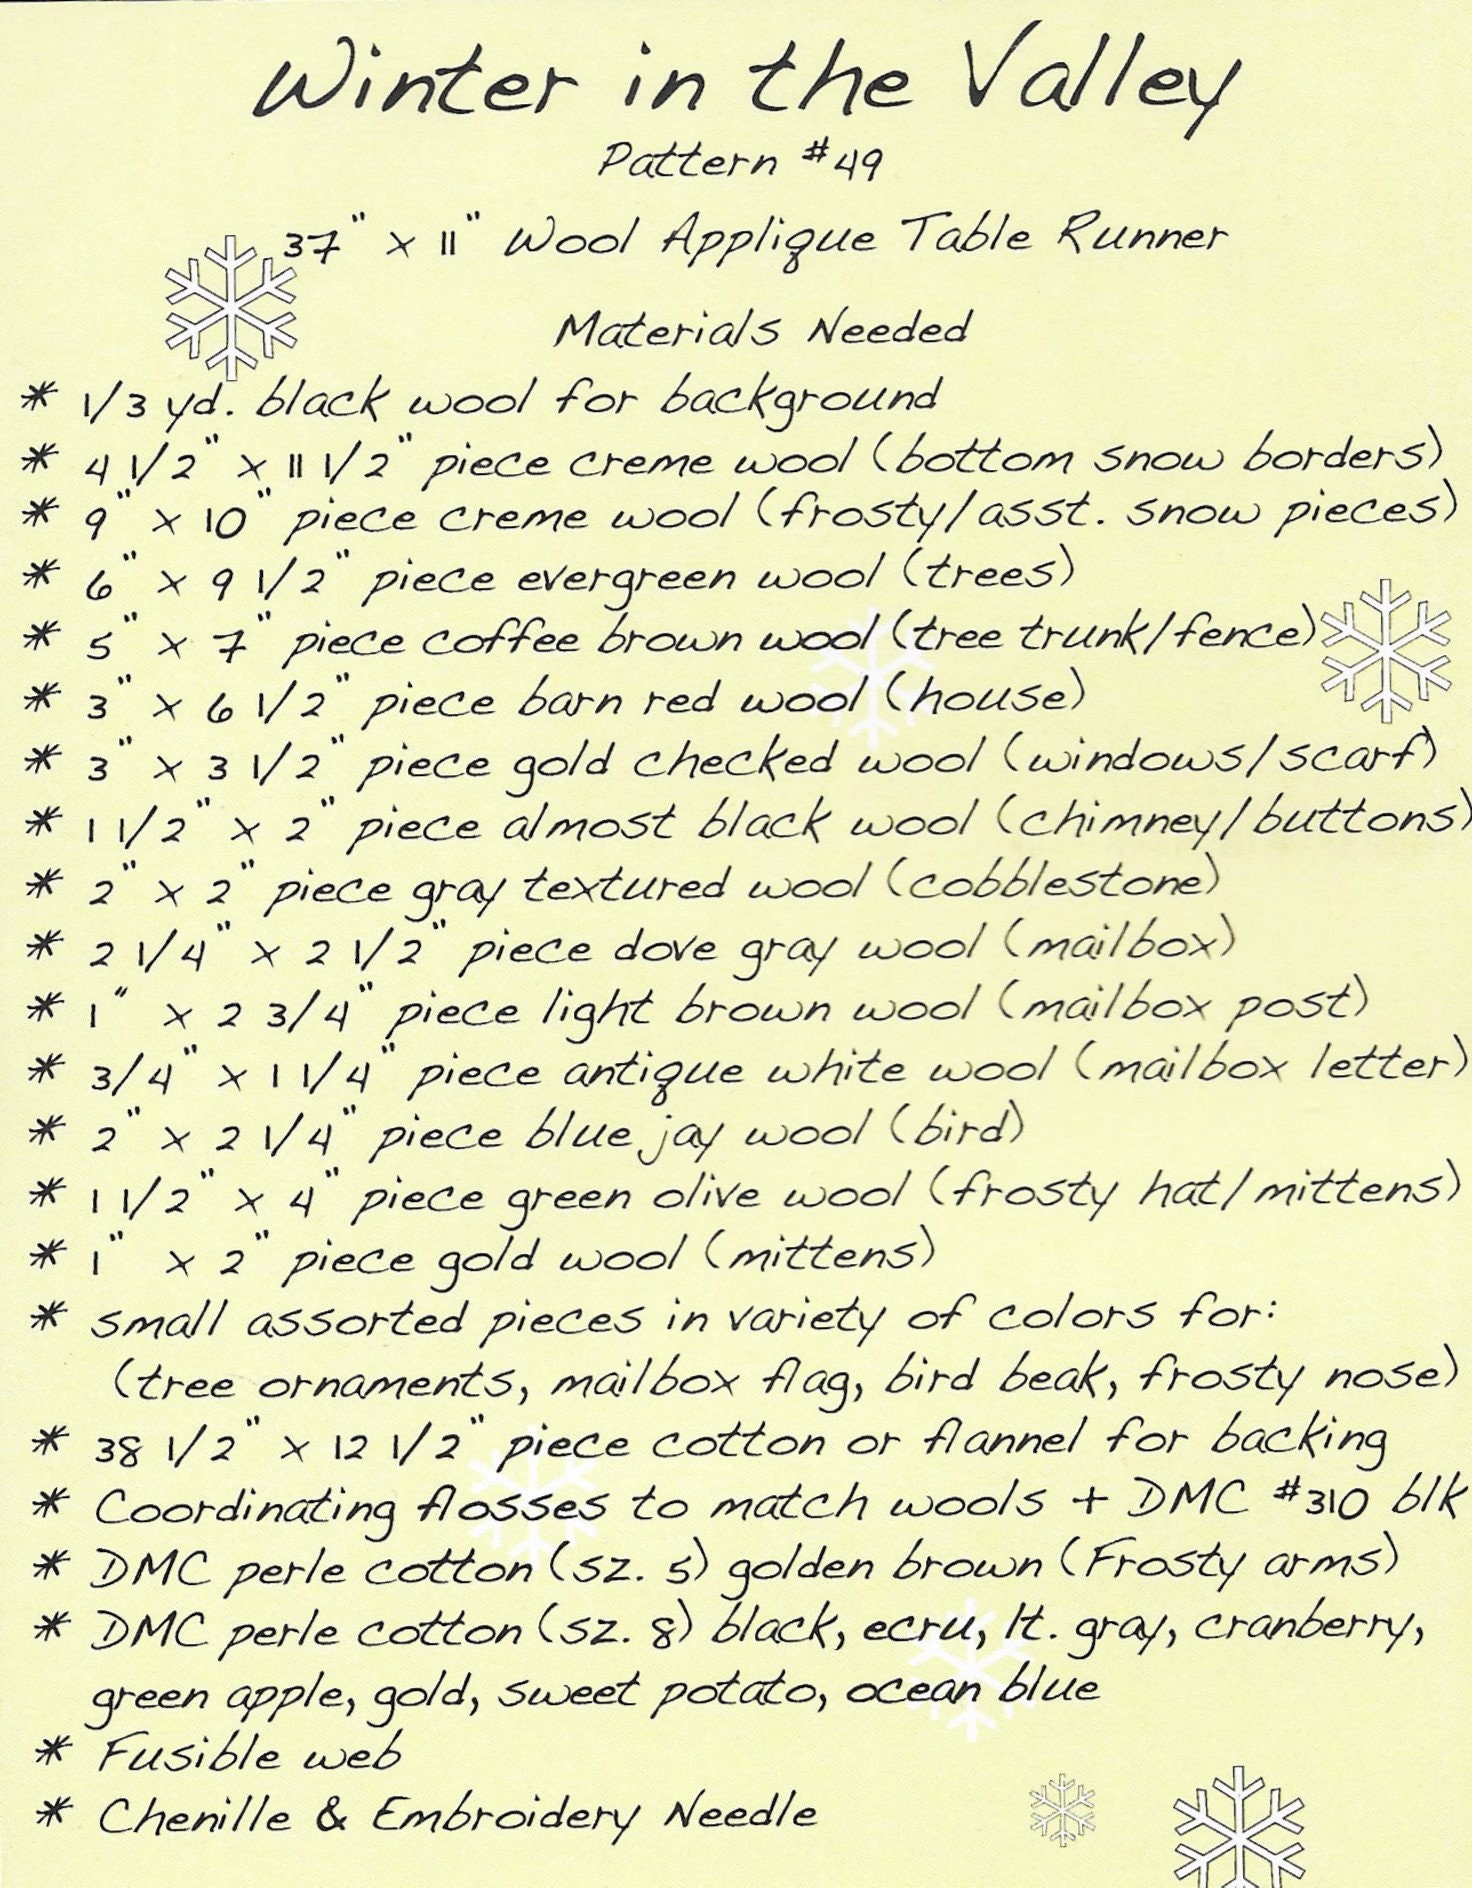 Winter in the Valley
Pattern #49
37" x 11" Wool Applique Table Runner
Materials Needed
* 1/3 yd. black wool for background
* 4 1/2" x 11 1/2" piece creme wool (bottom snow borders)
* 9" x 10" piece creme wool (frosty/asst. snow pieces)
* 6" x 9 1/2" piece evergreen wool (trees)
* 5" x 7" piece coffee brown wool (tree trunk/fence)
* 3" x 6 1/2" piece barn red wool (house)
* 3" x 3 1/2" piece gold checked wool (windows/scarf)
* 1 1/2" x 2" piece almost black wool (chimney/buttons)
* 2" x 2" piece gray textured wool (cobblestone)
* 2 1/4" x 2 1/2" piece dove gray wool (mailbox)
* 1" x 2 3/4" piece light brown wool (mailbox post)
* 3/4" x 1 1/4" piece antique white wool (mailbox letter)
* 2" x 2 1/4" piece blue jay wool (bird)
* 1 1/2" x 4" piece green olive wool (frosty hat/mittens)
* 1" x 2" piece gold wool (mittens)
* small assorted pieces in variety of colors for:
(tree ornaments, mailbox flag, bird beak, frosty nose)
* 38 1/2" x 12 1/2" piece cotton or flannel for backing
* Coordinating flosses to match wools + DMC #310 blk
* DMC perle cotton (sz. 5) golden brown (Frosty arms)
* DMC perle cotton (sz. 8) black, ecru, lt. gray, cranberry,
green apple, gold, sweet potato, ocean blue
* Fusible web
* Chenille & Embroidery Needle